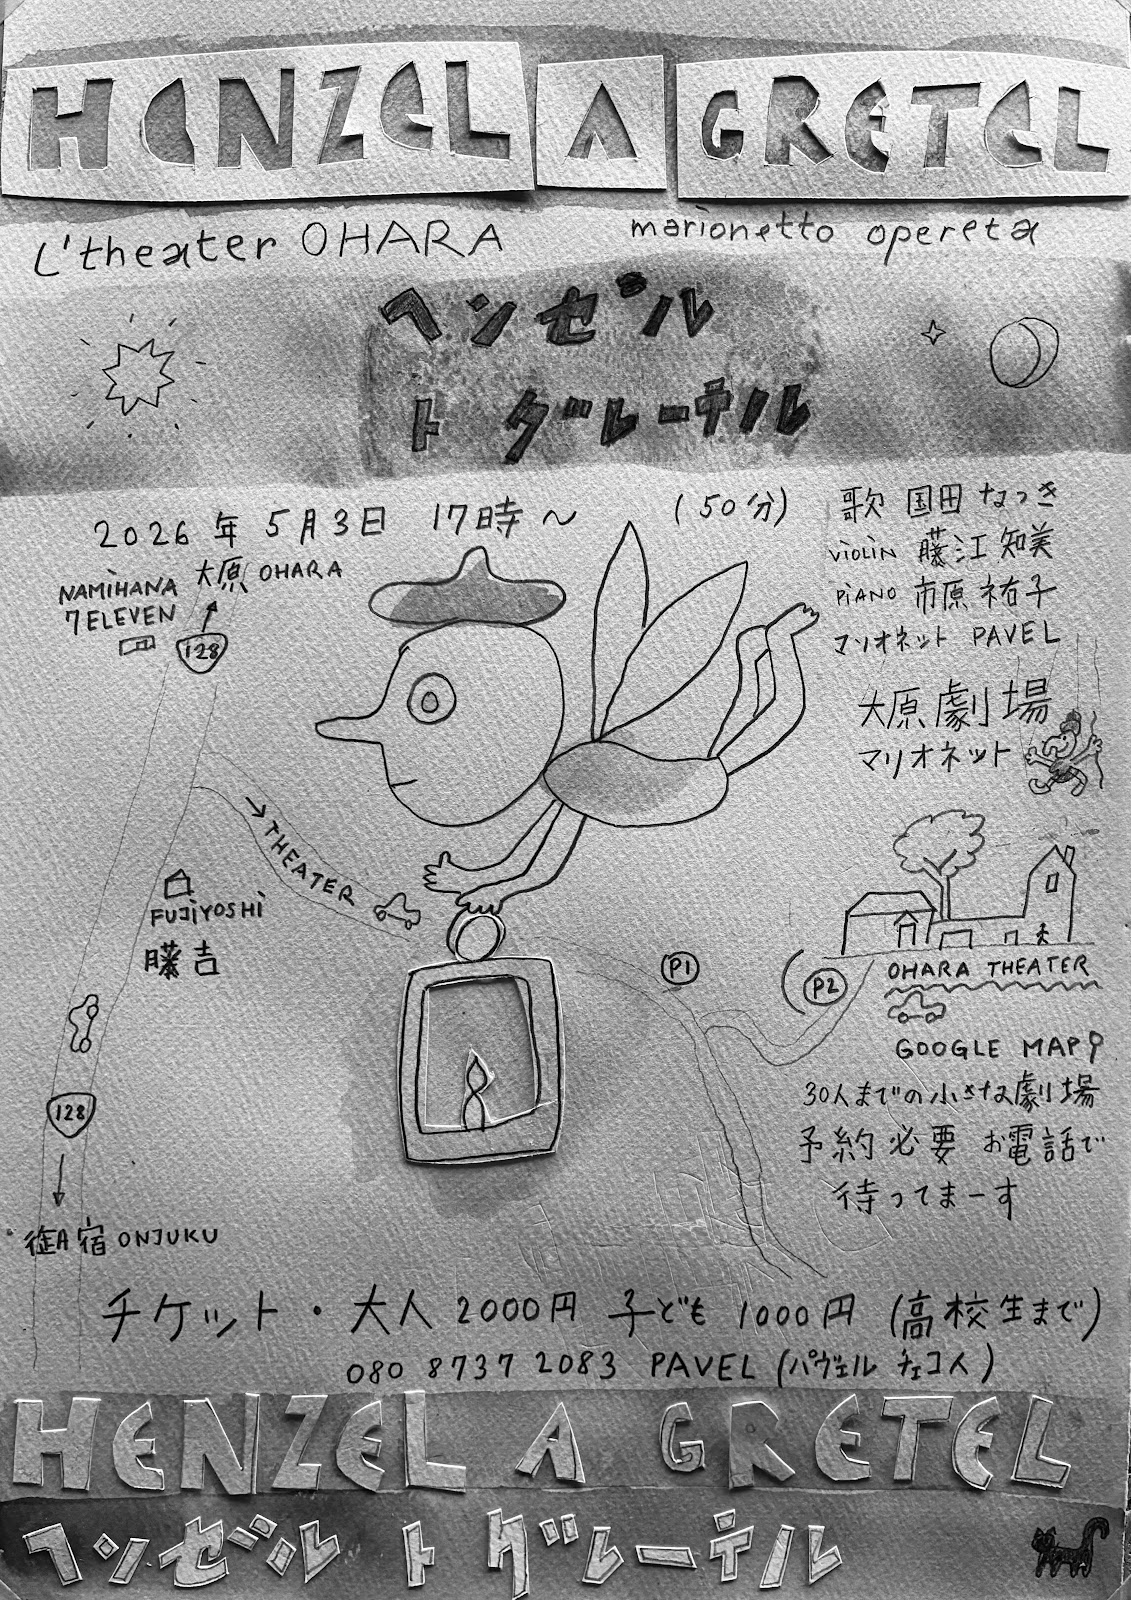 HENZEL A GRETEL
L'theater OHARA
marionetto opereta
ヘンゼル
ト グレーテル
2026年5月3日 17時～ (50分)
歌 国田なつき
violin 藤江知美
PiANO 市原祐子
マリオネット PAVEL
大原劇場
マリオネット
NAMiHANA
7ELEVEN
大原 OHARA
128
→ THEATER
FUJiYOSHi
藤吉
128
御宿 ONJUKU
P1
P2
OHARA THEATER
GOOGLE MAP
30人までの小さな劇場
予約必要 お電話で
待ってまーす
チケット・大人 2000円 子ども 1000円 (高校生まで)
080 8737 2083 PAVEL (パヴェル チェコ人)
HENZEL A GRETEL
ヘンゼル ト グレーテル